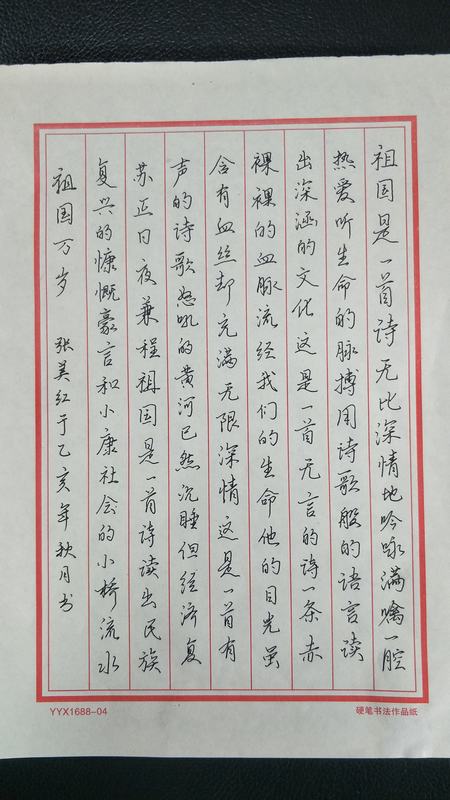 祖国是一首诗无比深情地吟咏满噙一腔
热爱听生命的脉搏用诗歌般的语言读
出深涵的文化这是一首无言的诗一条赤
裸裸的血脉流经我们的生命他的目光虽
含有血丝却充满无限深情这是一首有
声的诗歌怒吼的黄河已然沉睡但经济复
苏正日夜兼程祖国是一首诗读出民族
复兴的慷慨豪言和小康社会的小桥流水
祖国万岁 张美红于乙亥年秋月书
YYX1688-04
硬笔书法作品纸